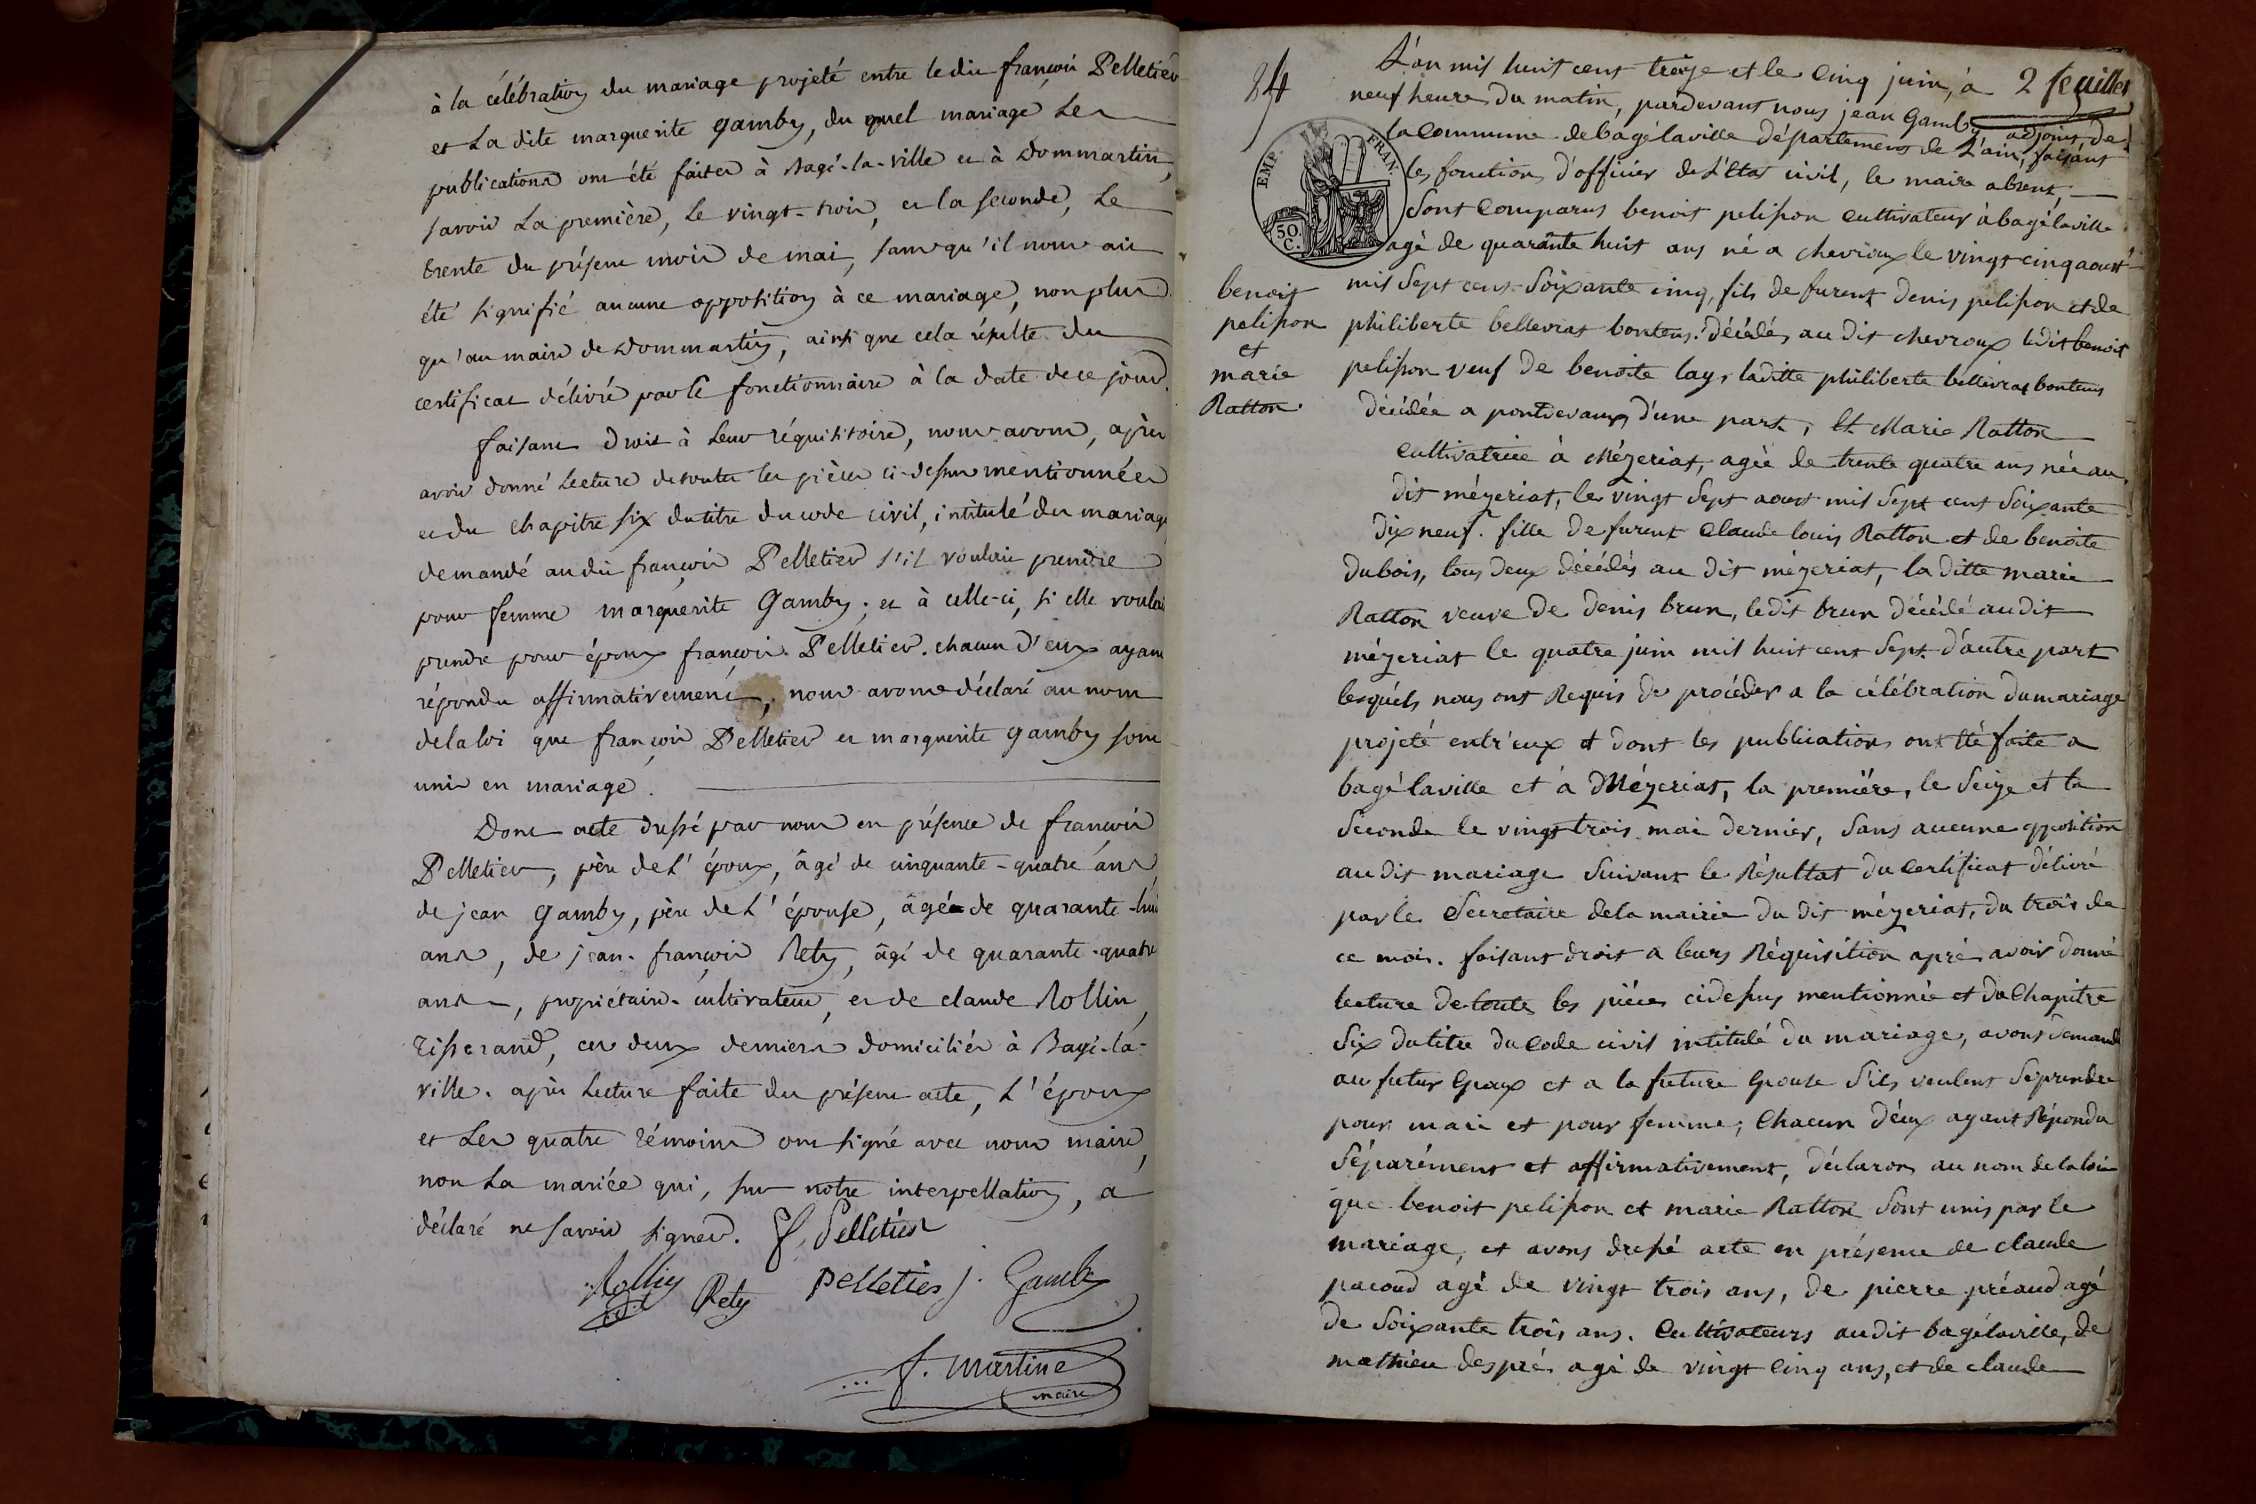 à la célébration du mariage projeté entre ledit françois Pelletier
et La dite marguerite gamby, du quel mariage Les
publications ont été faites à Bagé-la-ville et à Dommartin,
savoir La première, Le vingt-trois, et la seconde, Le
trente du présent mois de mai, sans qu'il nous ait
été signifié aucune opposition à ce mariage, non plus
qu'au maire de Dommartin, ainsi que cela résulte du
certificat délivré par le fonctionnaire à la date de ce jour.
faisant droit à Leur réquisitoire, nous avons, après
avoir donné Lecture de toutes les pièces ci-dessus mentionnées
et du chapitre six du titre du code civil, intitulé du mariage
demandé audit françois Pelletier s'il vouloit prendre
pour femme marguerite Gamby; et à celle-ci, si elle vouloit
prendre pour époux françois Pelletier. chacun d'eux ayant
répondu affirmativement, nous avons déclaré au nom
de la loi que françois Pelletier et marguerite gamby sont
unis en mariage.
Dont acte dressé par nous en présence de françois
Pelletier, père de L'époux, âgé de cinquante-quatre ans
de jean Gamby, père de L'épouse, âgé de quarante-huit
ans, de jean-françois Rety, âgé de quarante-quatre
ans, propriétaire-cultivateur, et de claude Rollin,
Tisserand, ces deux derniers domiciliés à Bagé-la-
ville. après Lecture faite du présent acte, L'époux
et Les quatre témoins ont signé avec nous maire,
non La mariée qui, sur notre interpellation, a
déclaré ne savoir signer. f. Pelletier
Rollin Rety Pelletier j. Gamby
f. martine
maire
24
2 feuillet
EMP. FRAN.
50. C.
benoit
pelisson
et
marie
Ratton.
L'an mil huit cent treize et le cinq juin, à
neuf heures du matin, pardevant nous jean Gamby adjoint de
la Commune de bagélaville département de L'ain, faisant
les fonctions d'officier de L'état civil, le maire absent,
Sont Comparus benoit pelisson cultivateur à bagélaville
agé de quarante huit ans né a chevroux le vingt cinq aoust
mil Sept cent Soixante cinq, fils de furent denis pelisson et de
philiberte bellevrat bontens. décédés au dit chevroux ledit benoit
pelisson veuf de benoite lay, laditte philiberte bellevrat bontens
décédée a pontdevaux, d'une part, Et Marie Ratton
Cultivatrice à Mézeriat, agée de trente quatre ans née au
dit mézeriat, le vingt Sept aoust mil Sept cent Soixante
dix neuf. fille de furent Claude louis Ratton et de benoite
dubois, tous deux décédés au dit mézeriat, la ditte marie
Ratton veuve de denis brun, ledit brun décédé audit
mézeriat le quatre juin mil huit cent Sept. d'autre part
lesquels nous ont Requis de procéder a la célébration du mariage
projeté entr'eux et dont les publications ont été faite a
bagélaville et à Mézeriat, la première, le Seize et la
Seconde le vingt trois mai dernier, Sans aucune opposition
au dit mariage Suivant le Résultat du Certificat délivré
par le Secretaire de la mairie du dit mézeriat, du trois de
ce mois. faisant droit a leurs Réquisition aprè avoir donné
lecture de toute les pièces cidessus mentionnée et du Chapitre
Six du titre du Code civil intitulé du mariage, avons demandé
au futur Epoux et a la future Epouse S'ils veulent Se prendre
pour mari et pour femme; Chacun d'eux ayant Répondu
Séparément et affirmativement, déclarons au nom de la loi
que benoit pelisson et marie Ratton Sont unis par le
mariage, et avons dressé acte en présence de claude
pacoud agé de vingt trois ans, de pierre préaud agé
de Soixante trois ans. Cultivateurs audit bagélaville, de
mathieu despré agé de vingt Cinq ans, et de claude